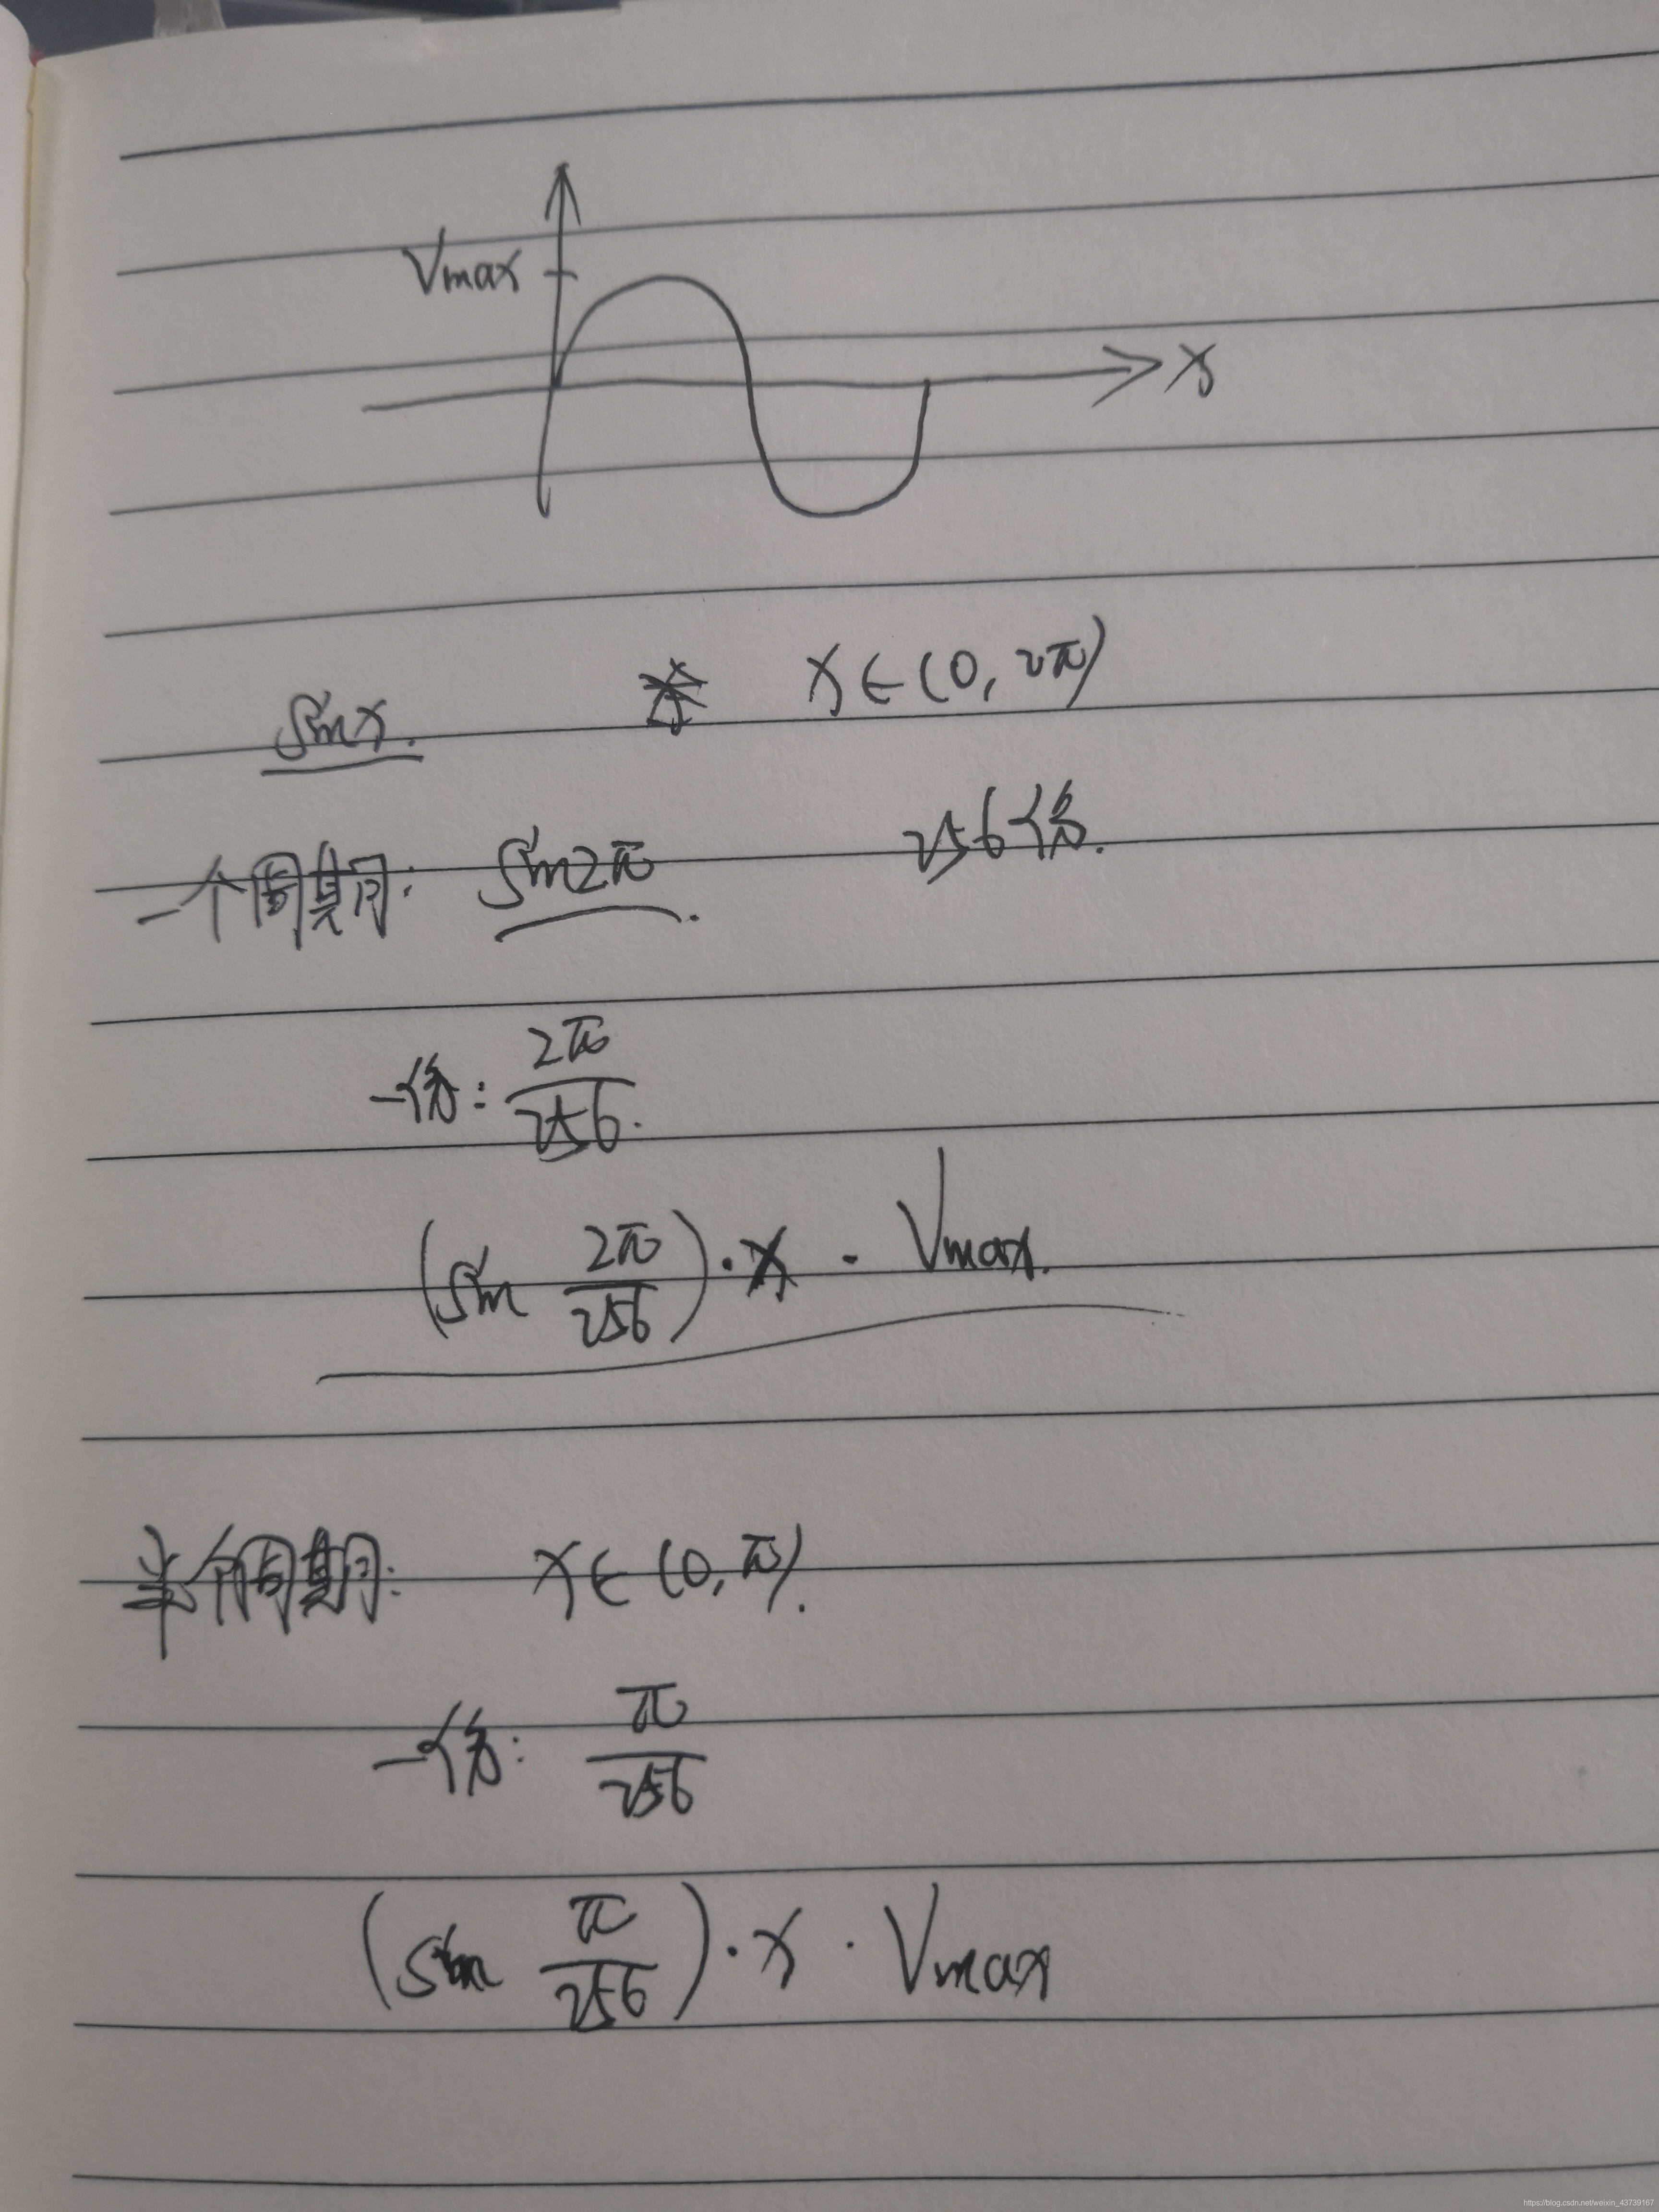 Vmax
x
sinx. x∈(0, 2π)
一个周期: sin2π. 256份.
一份: 2π/256.
(sin 2π/256)·x · Vmax.
半个周期: x∈(0, π).
一份: π/256
(sin π/256)·x · Vmax
https://blog.csdn.net/weixin_43739167